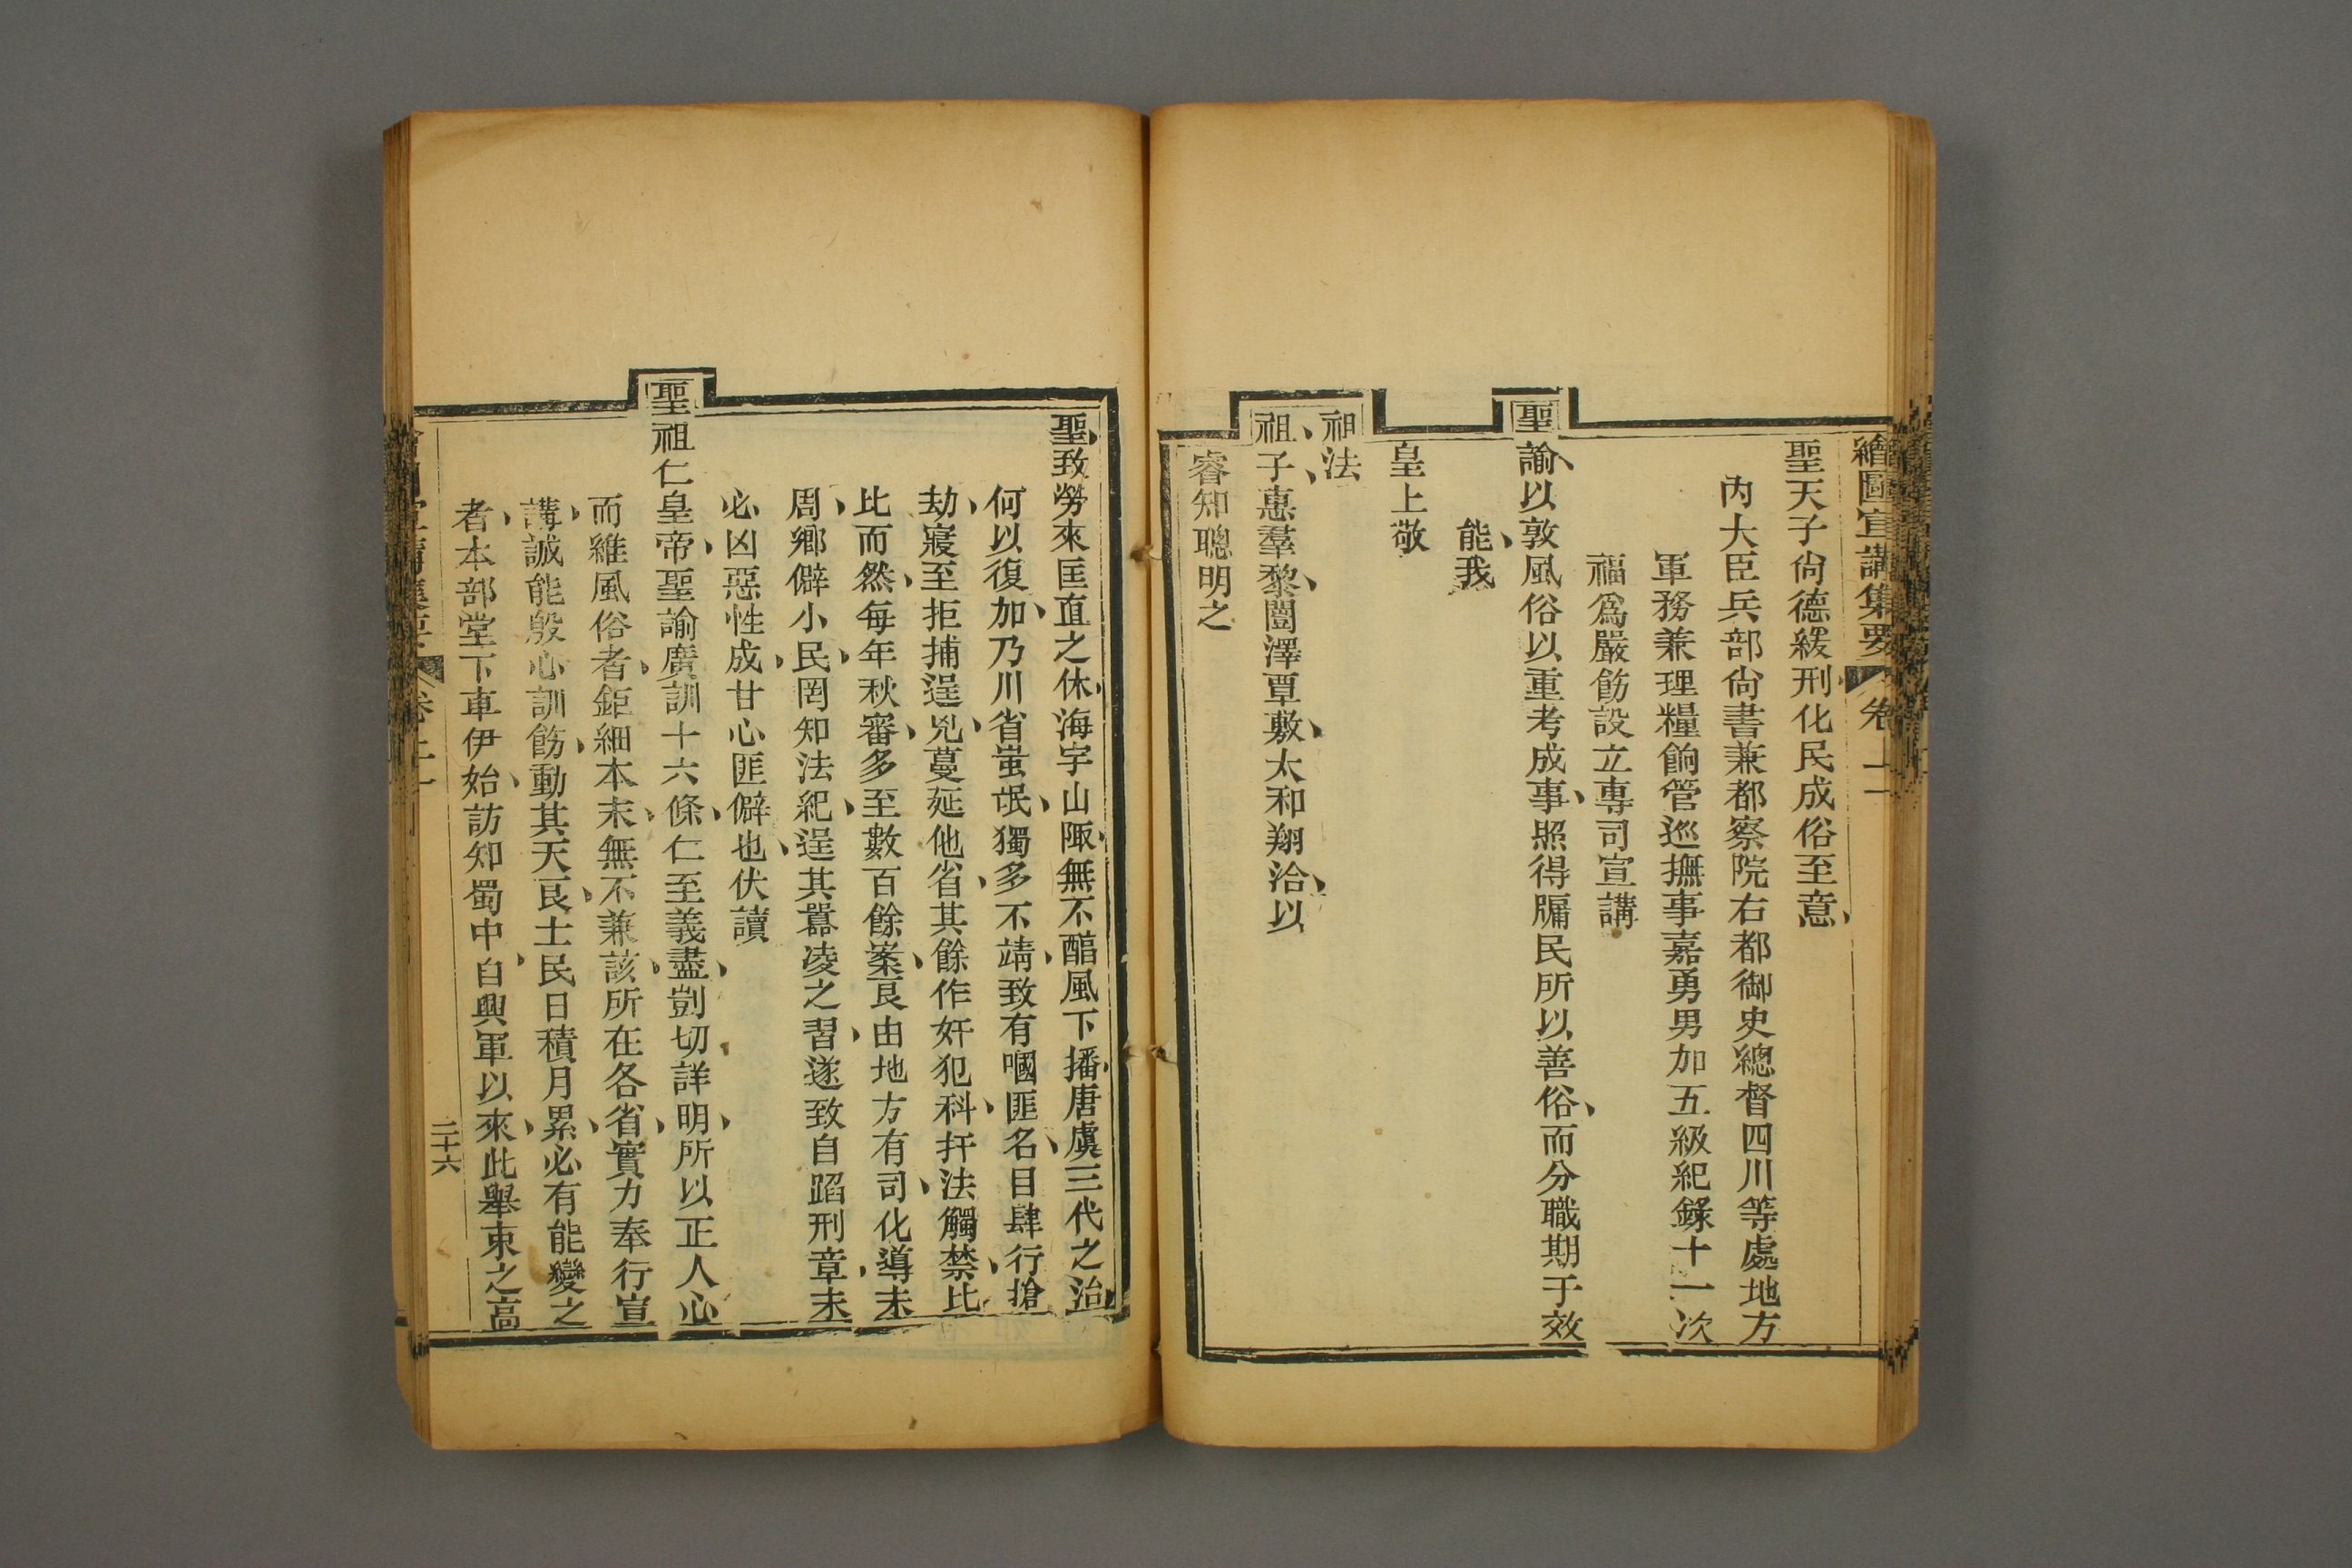 繪圖宣講集要 卷十二
聖天子尙德緩刑化民成俗至意
內大臣兵部尙書兼都察院右都御史總督四川等處地方
軍務兼理糧餉管巡撫事嘉勇男加五級紀錄十一次
福爲嚴飭設立專司宣講
聖諭以敦風俗以重考成事照得牖民所以善俗而分職期于效
能我
皇上敬
祖法
祖子惠羣黎闓澤覃敷太和翔洽以
睿知聰明之
聖致勞來匡直之休海宇山陬無不醧風下播唐虞三代之治
何以復加乃川省蚩氓獨多不靖致有嘓匪名目肆行搶
劫寢至拒捕逞兇蔓延他省其餘作奸犯科扞法觸禁比
比而然每年秋審多至數百餘案良由地方有司化導未
周鄉僻小民罔知法紀逞其囂凌之習遂致自蹈刑章未
必凶惡性成甘心匪僻也伏讀
聖祖仁皇帝聖諭廣訓十六條仁至義盡剴切詳明所以正人心
而維風俗者鉅細本末無不兼該所在各省實力奉行宣
講誠能殷心訓飭動其天良士民日積月累必有能變之
者本部堂下車伊始訪知蜀中自興軍以來此舉束之高
二十六